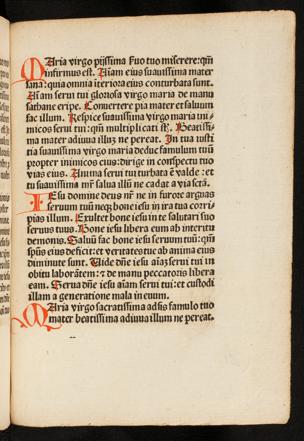 Maria virgo pijssima suo tuo miserere: qm̄
infirmus est. Aīam eius suauissima mater
sana: quia omnia īteriora eius conturbata sunt.
Aīam serui tui gloriosa virgo maria de manu
sathane eripe. Conuertere pia mater et saluum
fac illum. Respice suauissima virgo maria ini-
micos serui tui: qm̄ multiplicati st̄. Beatissi-
ma mater adiuua illuȝ ne pereat. In tua iusti
tia suauissima virgo maria deduc famulum tuū
propter inimicos eius: dirige in conspectu tuo
vias eius. Anima serui tui turbata ē valde: et
tu suauissima mr̄ salua illū ne cadat a via sctā.
Iesu domine deus nr̄ ne in furore arguas
seruum tuū neqȝ bone iesu in ira tua corri-
pias illum. Exultet bone iesu in te salutari suo
seruus tuus. Bone iesu libera eum ab incritu
demonis. Saluū fac bone iesu seruum tuū: qm̄
spūs eius deficit: et veritates tue ab anima eius
diminute sunt. Uide dn̄e iesu aīaȝ serui tui in
obitu laborātem: ⁊ de manu peccatoris libera
eam. Serua dn̄e iesu aīam serui tui: et custodi
illam a generatione mala in euum.
Maria virgo sacratissima adsis famulo tuo
mater beatissima adiuua illum ne pereat.